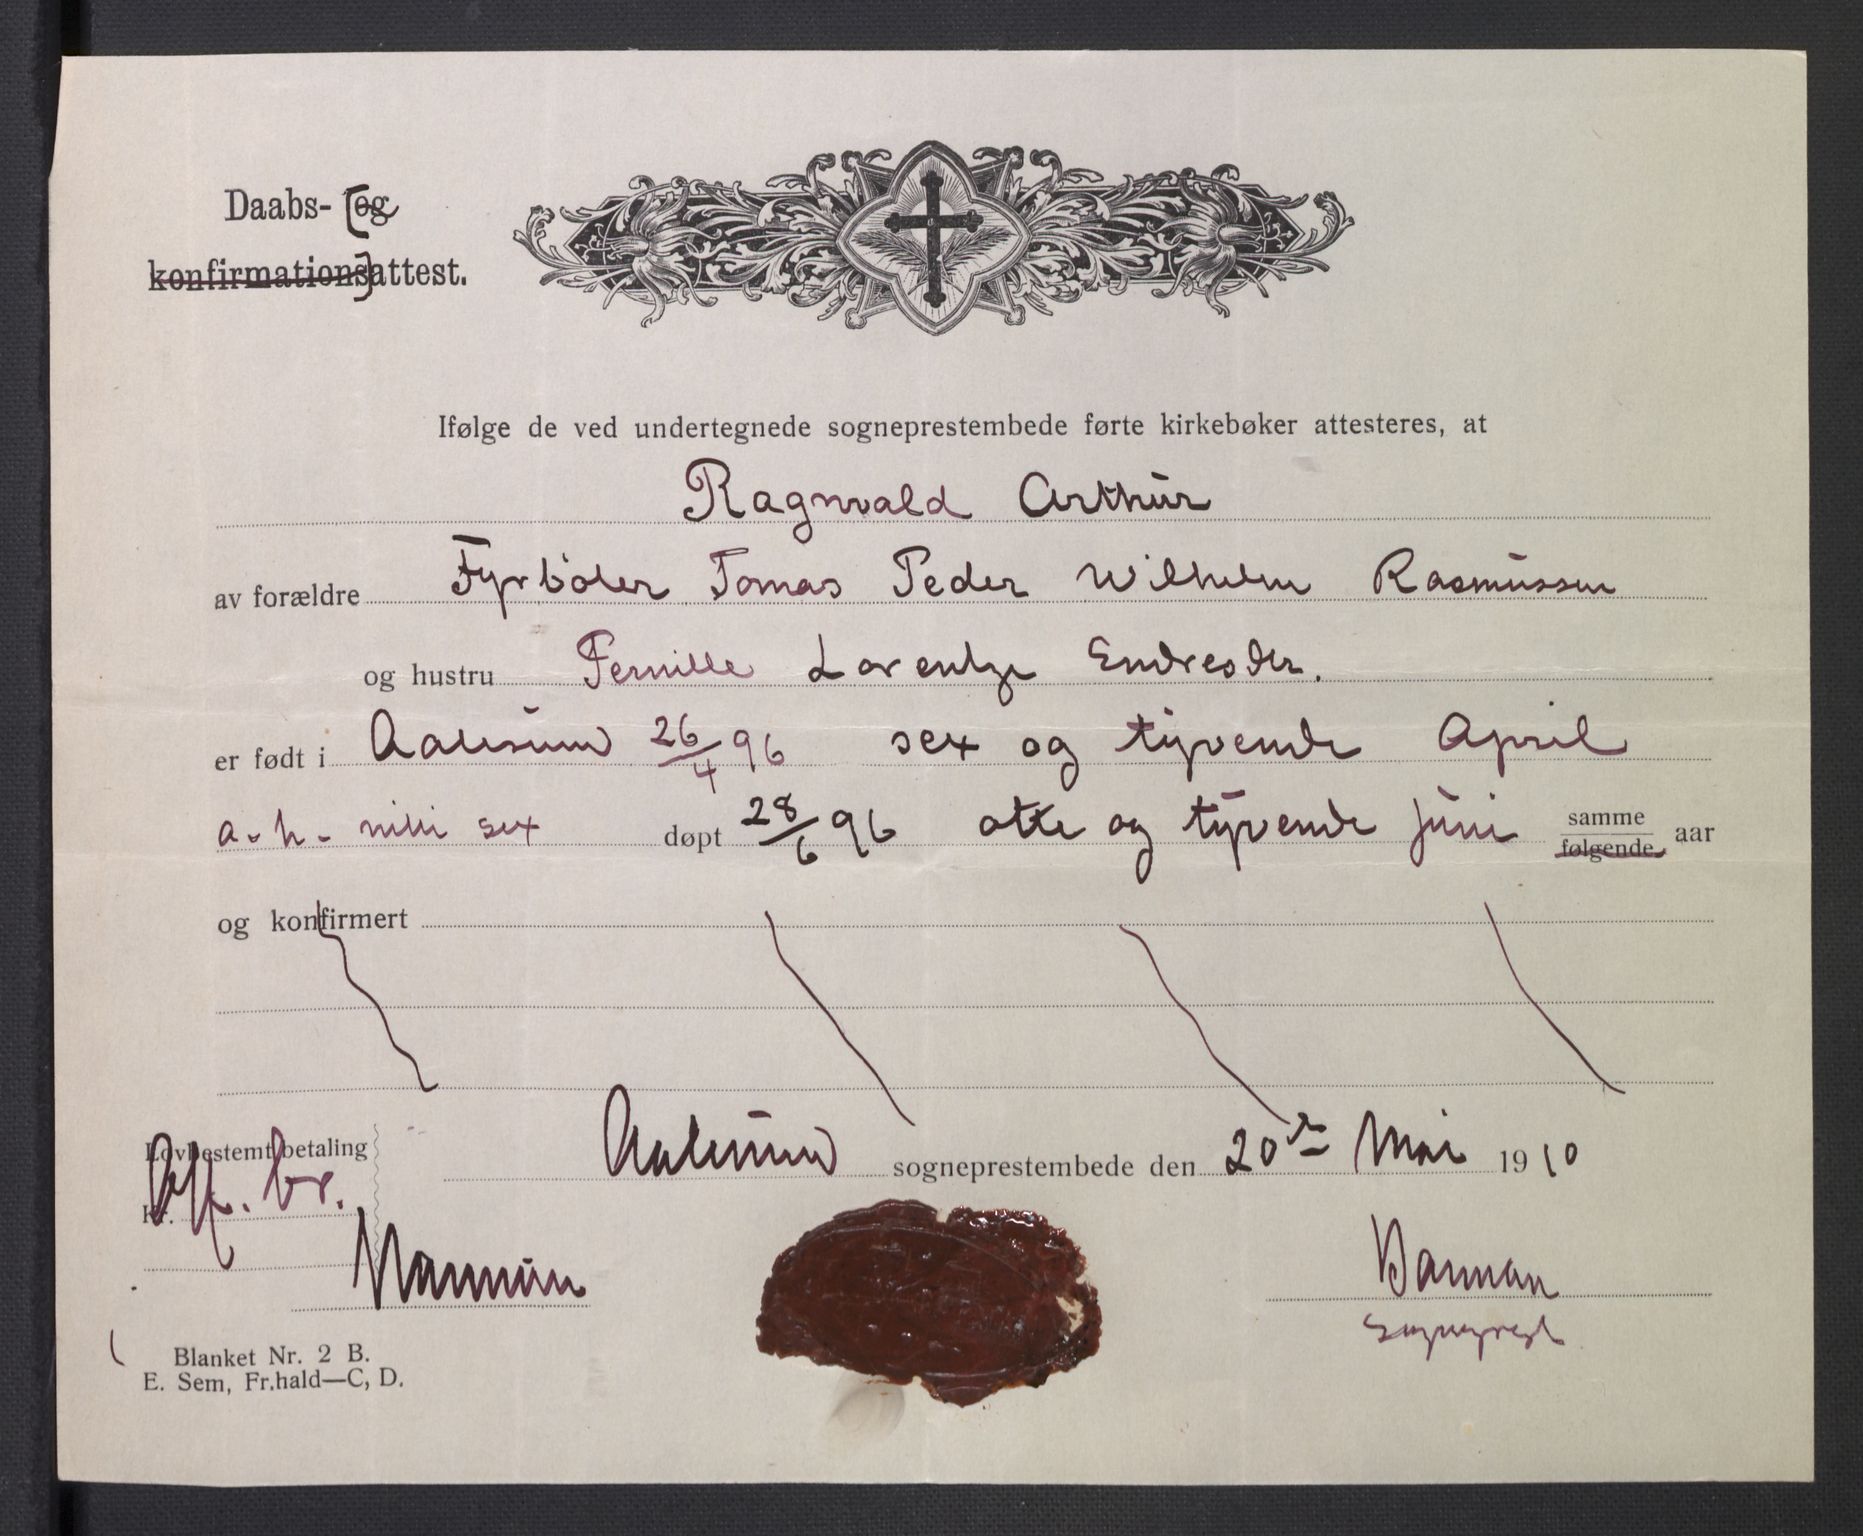 Daabs- [og
konfirmations]attest.
Ifølge de ved undertegnede sogneprestembede førte kirkebøker attesteres, at
Ragnvald Arthur
av forældre Fyrbøter Tomas Peder Wilhelm Rasmussen
og hustru Pernille Lorentze Endresdtr.
er født i Aalesund 26/4 96 sex og tyvende April
a. h. nitti sex døpt 28/6 96 otte og tyvende juni samme følgende aar
og konfirmert
Aalesund sogneprestembede den 20de Mai 1910
Lovbestemt betaling
Kr. Off. br.
Sogneprest
Blanket Nr. 2 B.
E. Sem, Fr.hald—C, D.